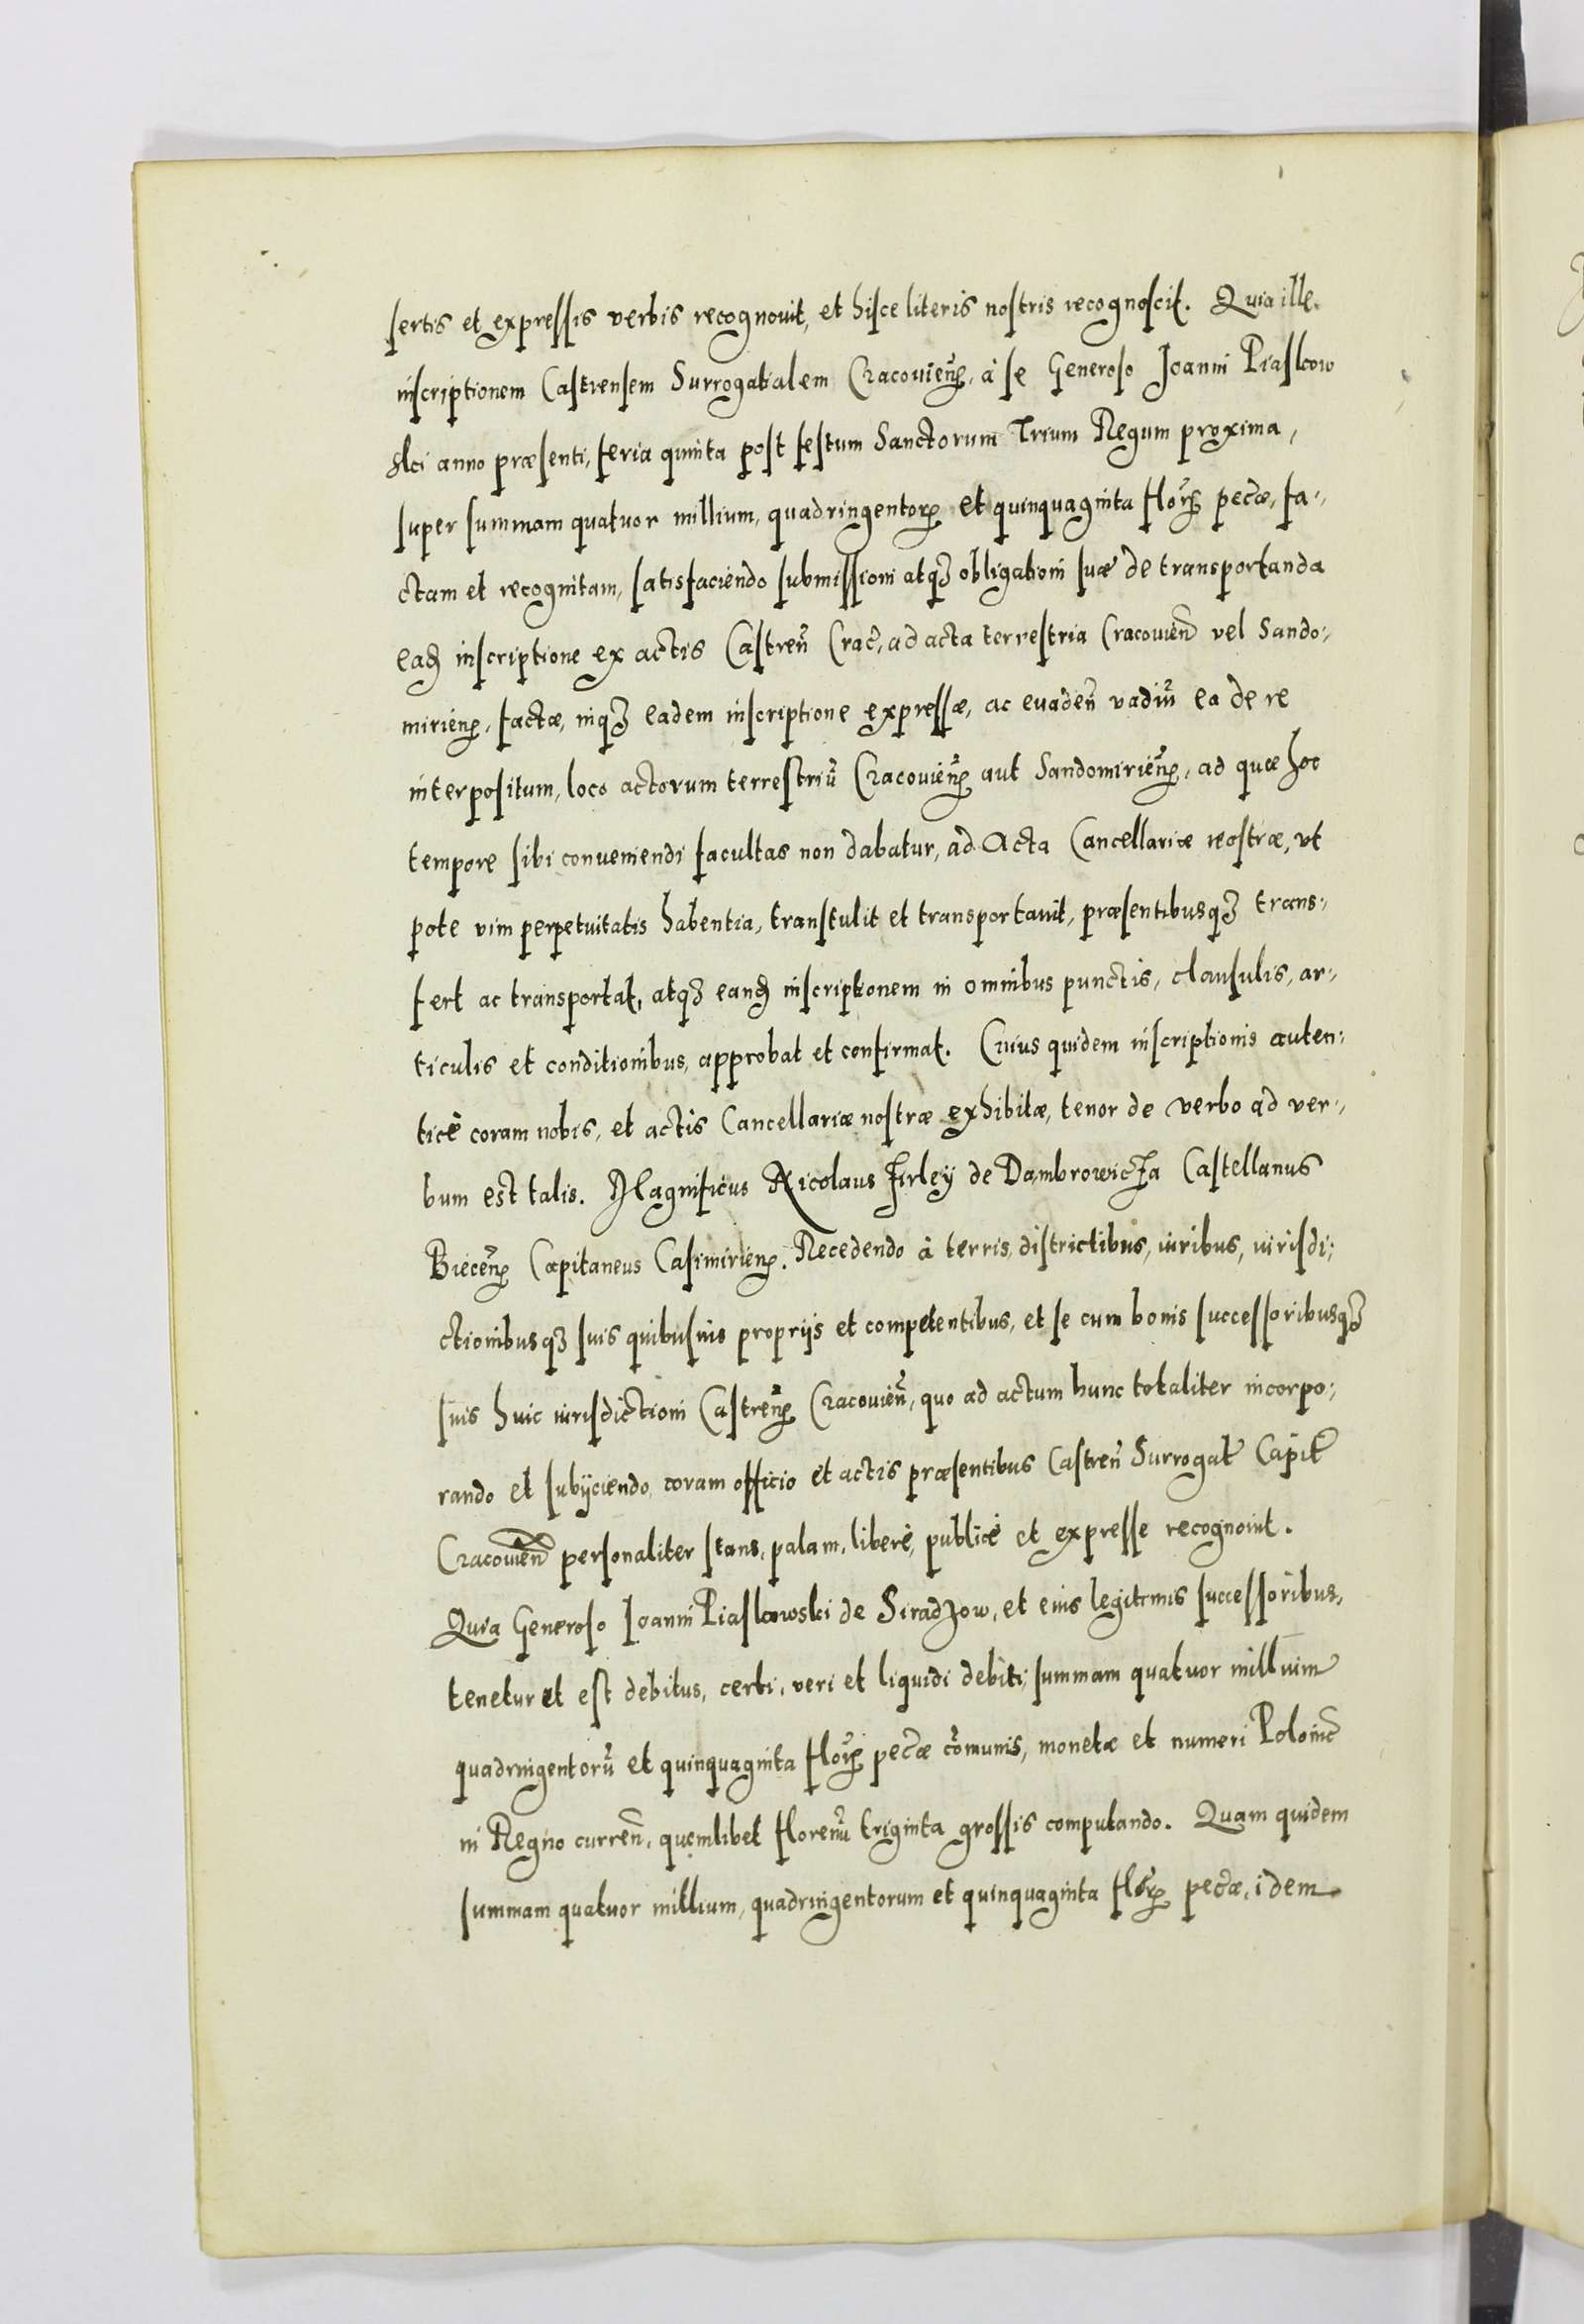 sertis et expressis verbis recognouit, et hisce literis nostris recognoscit. Quia ille
inscriptionem Castrensem Surrogatialem Cracouieñ, à se Generoso Joanni Piaskow
ski anno præsenti, feria quinta post festum Sanctorum Trium Regum proxima,
super summam quatuor millium, quadringentoꝝ et quinquaginta floꝝ pecæ, fa-,
ctam et recognitam, satisfaciendo submissioni atqꝫ obligationi suæ de transportanda
eadꝫ inscriptione ex actis Castreñ Crac̃, ad acta terrestria Cracouieñ vel Sando:,
mirieñ, factæ, inqꝫ eadem inscriptione expressæ, ac euadeñ vadiũ ea de re
interpositum, loco actorum terrestriũ Cracouieñ aut Sandomirieñ, ad quæ hoc
tempore sibi conueniendi facultas non dabatur, ad Acta Cancellariæ nostræ, vt
pote vim perpetuitatis habentia, transtulit et transportauit, præsentibusqꝫ trans:,
fert ac transportat, atqꝫ eandꝫ inscriptionem in omnibus punctis, clausulis, ar-,
ticulis et conditionibus, approbat et confirmat. Cuius quidem inscriptionis auten:
ticè coram nobis, et actis Cancellariæ nostræ exhibitæ, tenor de verbo ad ver-,
bum est talis. Magnificus Nicolaus Firleÿ de Dambrowicza Castellanus
Bieceñ Capitaneus Casimirieñ. Recedendo à terris, districtibus, iuribus, iurisdi:
ctionibusqꝫ suis quibusuis proprijs et competentibus, et se cum bonis successoribusqꝫ
suis huic iurisdictioni Castreñ Cracouieñ, quo ad actum hunc totaliter incorpo:,
rando et subijciendo, coram officio et actis præsentibus Castreñ Surrogat̃ Capit̃
Cracouieñ personaliter stans, palam, liberè, publicè et expresse recognouit.
Quia Generoso Joanni Piaskowski de Siradzow, et eius legitimis successoribus,
tenetur et est debitus, certi, veri et liquidi debiti, summam quatuor millium
quadringentorũ et quinquaginta floꝝ pecæ cõmunis, monetæ et numeri Polonic̃
in Regno curreñ, quemlibet florenũ triginta grossis computando. Quam quidem
summam quatuor millium, quadringentorum et quinquaginta floꝝ pecæ, idem